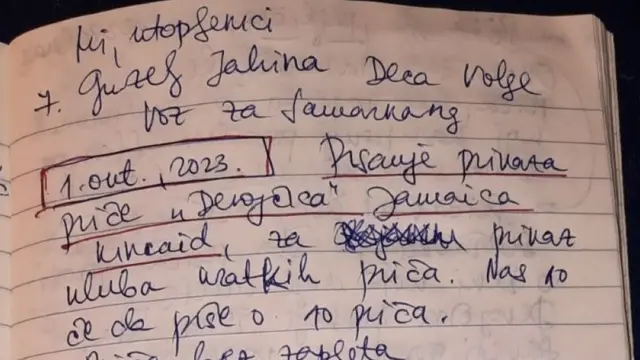 Mi, utopljenici
7. Guzelj Jahina Deca Volge
Voz za Samarkand
1. okt., 2023. Pisanje prikaza
priče "Devojčica" Jamaica
Kincaid, za prikaz
kluba kratkih priča. Nas 10
će da piše o 10 priča.
bez zapleta